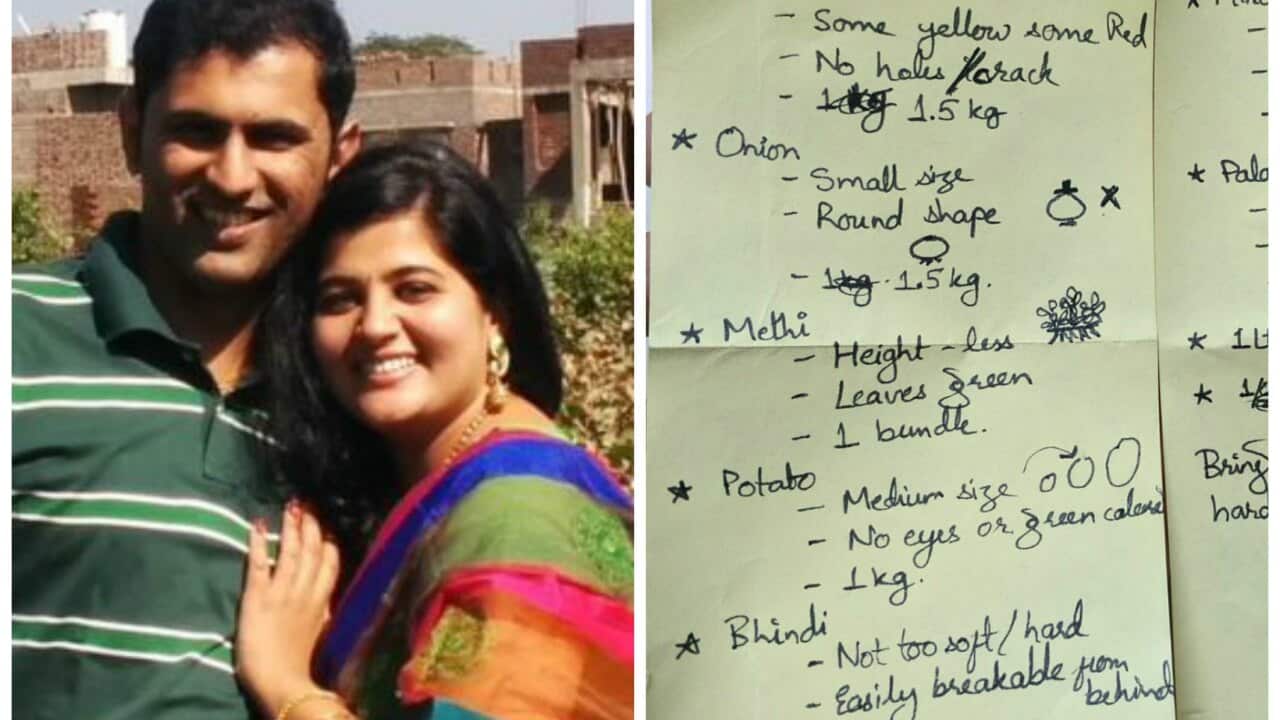 - Some yellow some Red
- No holes/crack
- 1kg 1.5 kg
* Onion
- Small size
- Round shape
x
- 1kg. 1.5 kg.
* Methi
- Height - less
- Leaves green
- 1 bundle.
* Potato
- Medium size
- No eyes or green colored
- 1 kg.
* Bhindi
- Not too soft/hard
- Easily breakable from
behind
* Pala
* 1 Lt
*
Bring
hard